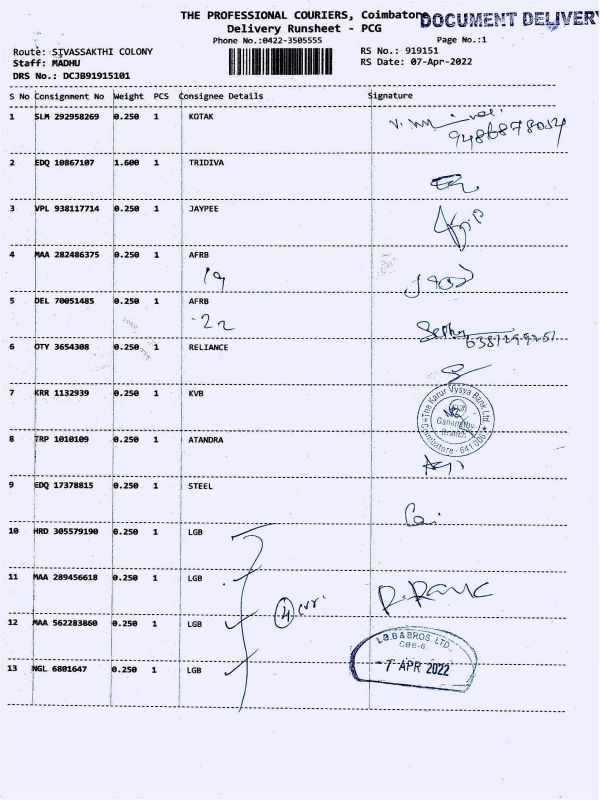 THE PROFESSIONAL COURIERS, Coimbatore
DOCUMENT DELIVERY
Delivery Runsheet - PCG
Phone No.:0422-3505555
Page No.:1
Route: SIVASSAKTHI COLONY
RS No.: 919151
Staff: MADHU
RS Date: 07-Apr-2022
DRS No.: DCJB91915101
S No Consignment No Weight PCS Consignee Details Signature
1 SLM 292958269 0.250 1 KOTAK
9486878034
2 EDQ 10867107 1.600 1 TRIDIVA
3 VPL 938117714 0.250 1 JAYPEE
4 MAA 282486375 0.250 1 AFRB
19
5 DEL 70051485 0.250 1 AFRB
22
6 OTY 3654308 0.250 1 RELIANCE
7 KRR 1132939 0.250 1 KVB
The Karur Vysya Bank Ltd.
Ganapathy
Branch
Coimbatore - 641 006
8 TRP 1010109 0.250 1 ATANDRA
9 EDQ 17378815 0.250 1 STEEL
10 HRD 305579190 0.250 1 LGB
11 MAA 289456618 0.250 1 LGB
4 Crr.
12 MAA 562283860 0.250 1 LGB
L.G.B & BROS. LTD.,
CBE-6.
-7 APR 2022
13 NGL 6801647 0.250 1 LGB